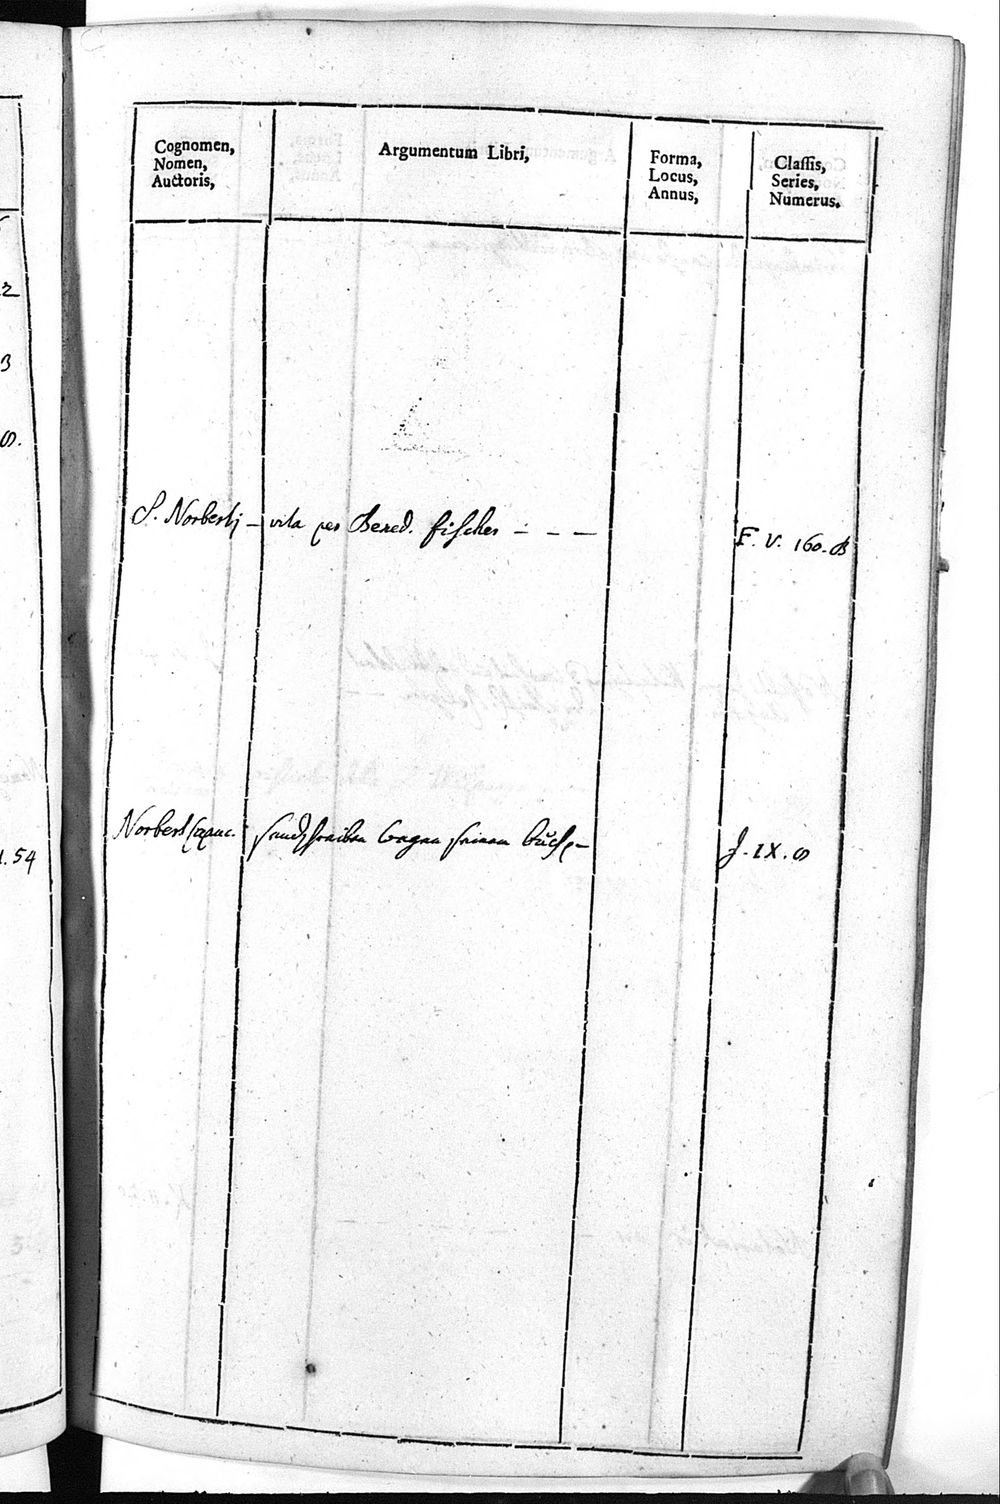 Cognomen,
Nomen,
Auctoris,
Argumentum Libri,
Forma,
Locus,
Annus,
Classis,
Series,
Numerus.
2
3
S. Norberti – vita per Bened. fischer – – –
F. V. 160. B
Norbert Capuc. sendschreiben wegen seinem buch –
J. IX.
1.54